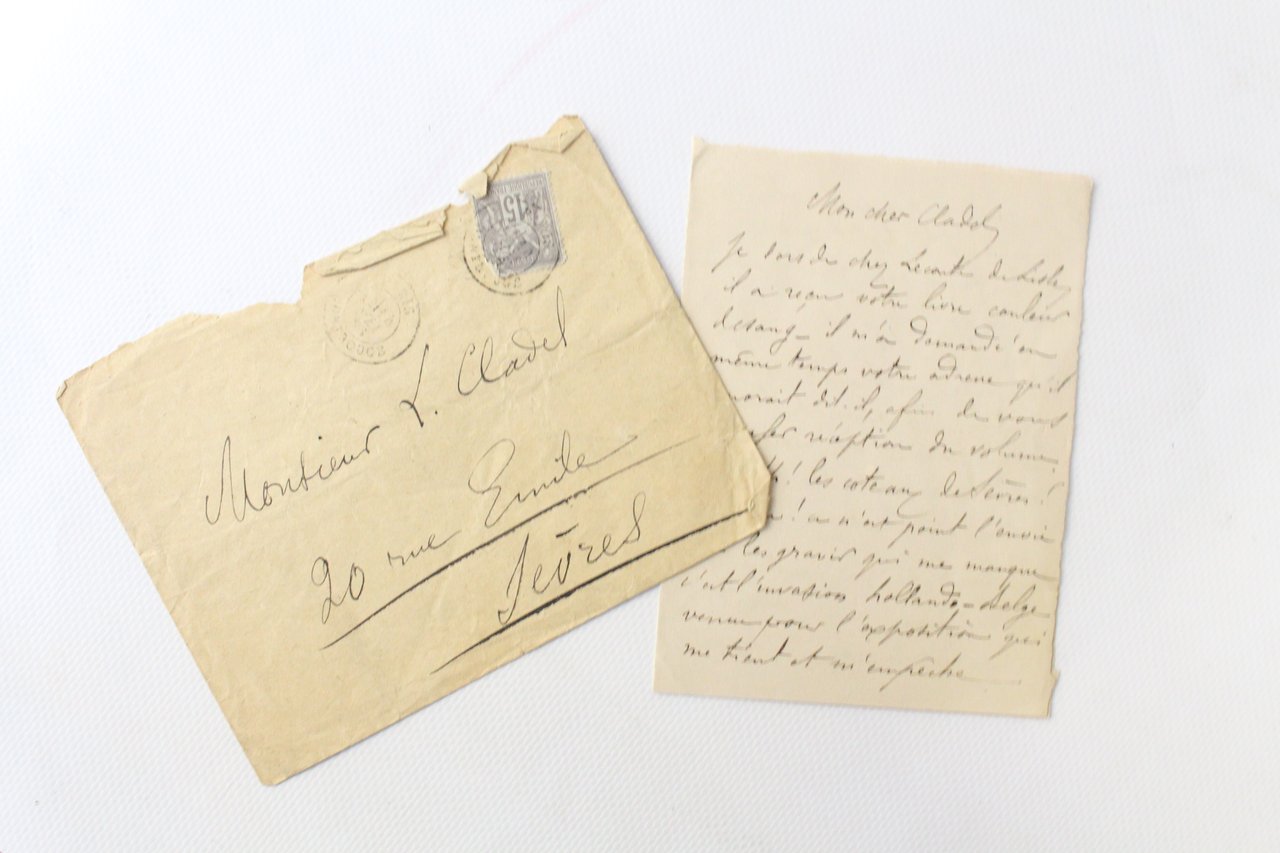 15
Monsieur L. Cladel
20 rue Emile
Sèvres
Mon cher Cladel
Je sors de chez Leconte de Lisle
il a reçu votre livre couleur
de sang - il m'a demandé en
même temps votre adresse qu'il
norait dit-il, afin de vous
user réception du volume
! les coteaux de Sèvres!
! ce n'est point l'envie
les gravir qui me manque
c'est l'invasion hollando-belge
venue pour l'exposition qui
me tient et m'empêche